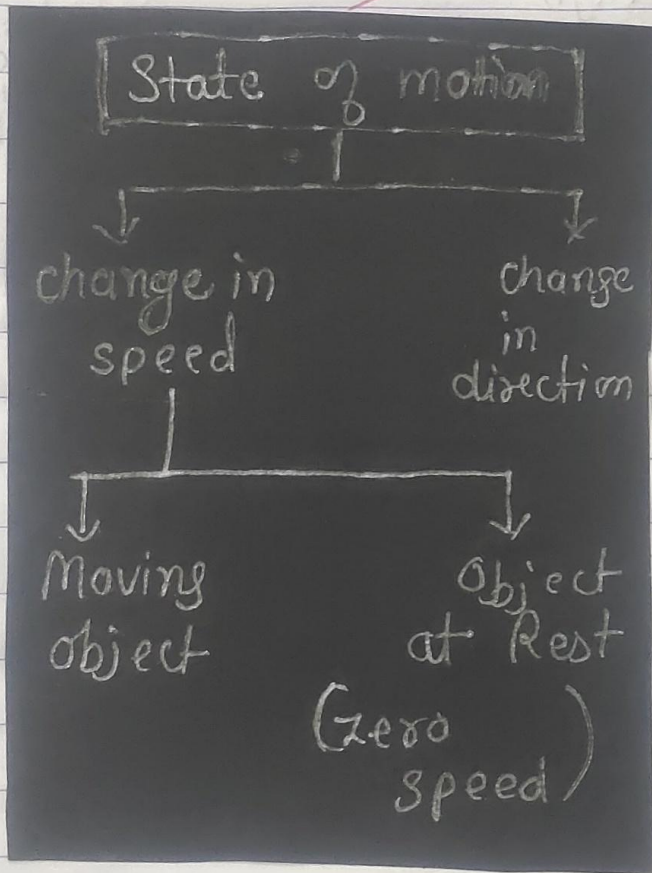 State of motion
change in
speed
change
in
direction
Moving
object
Object
at Rest
(zero
speed)